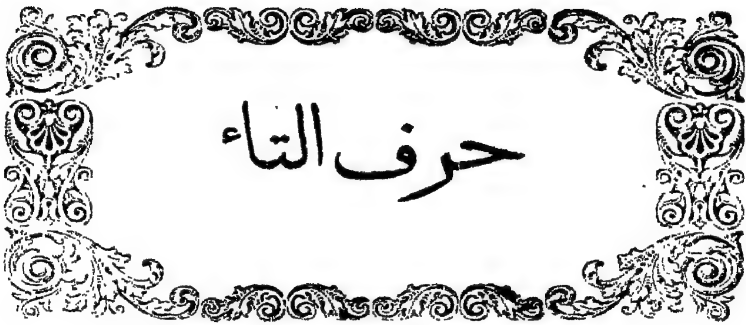 حرف التاء